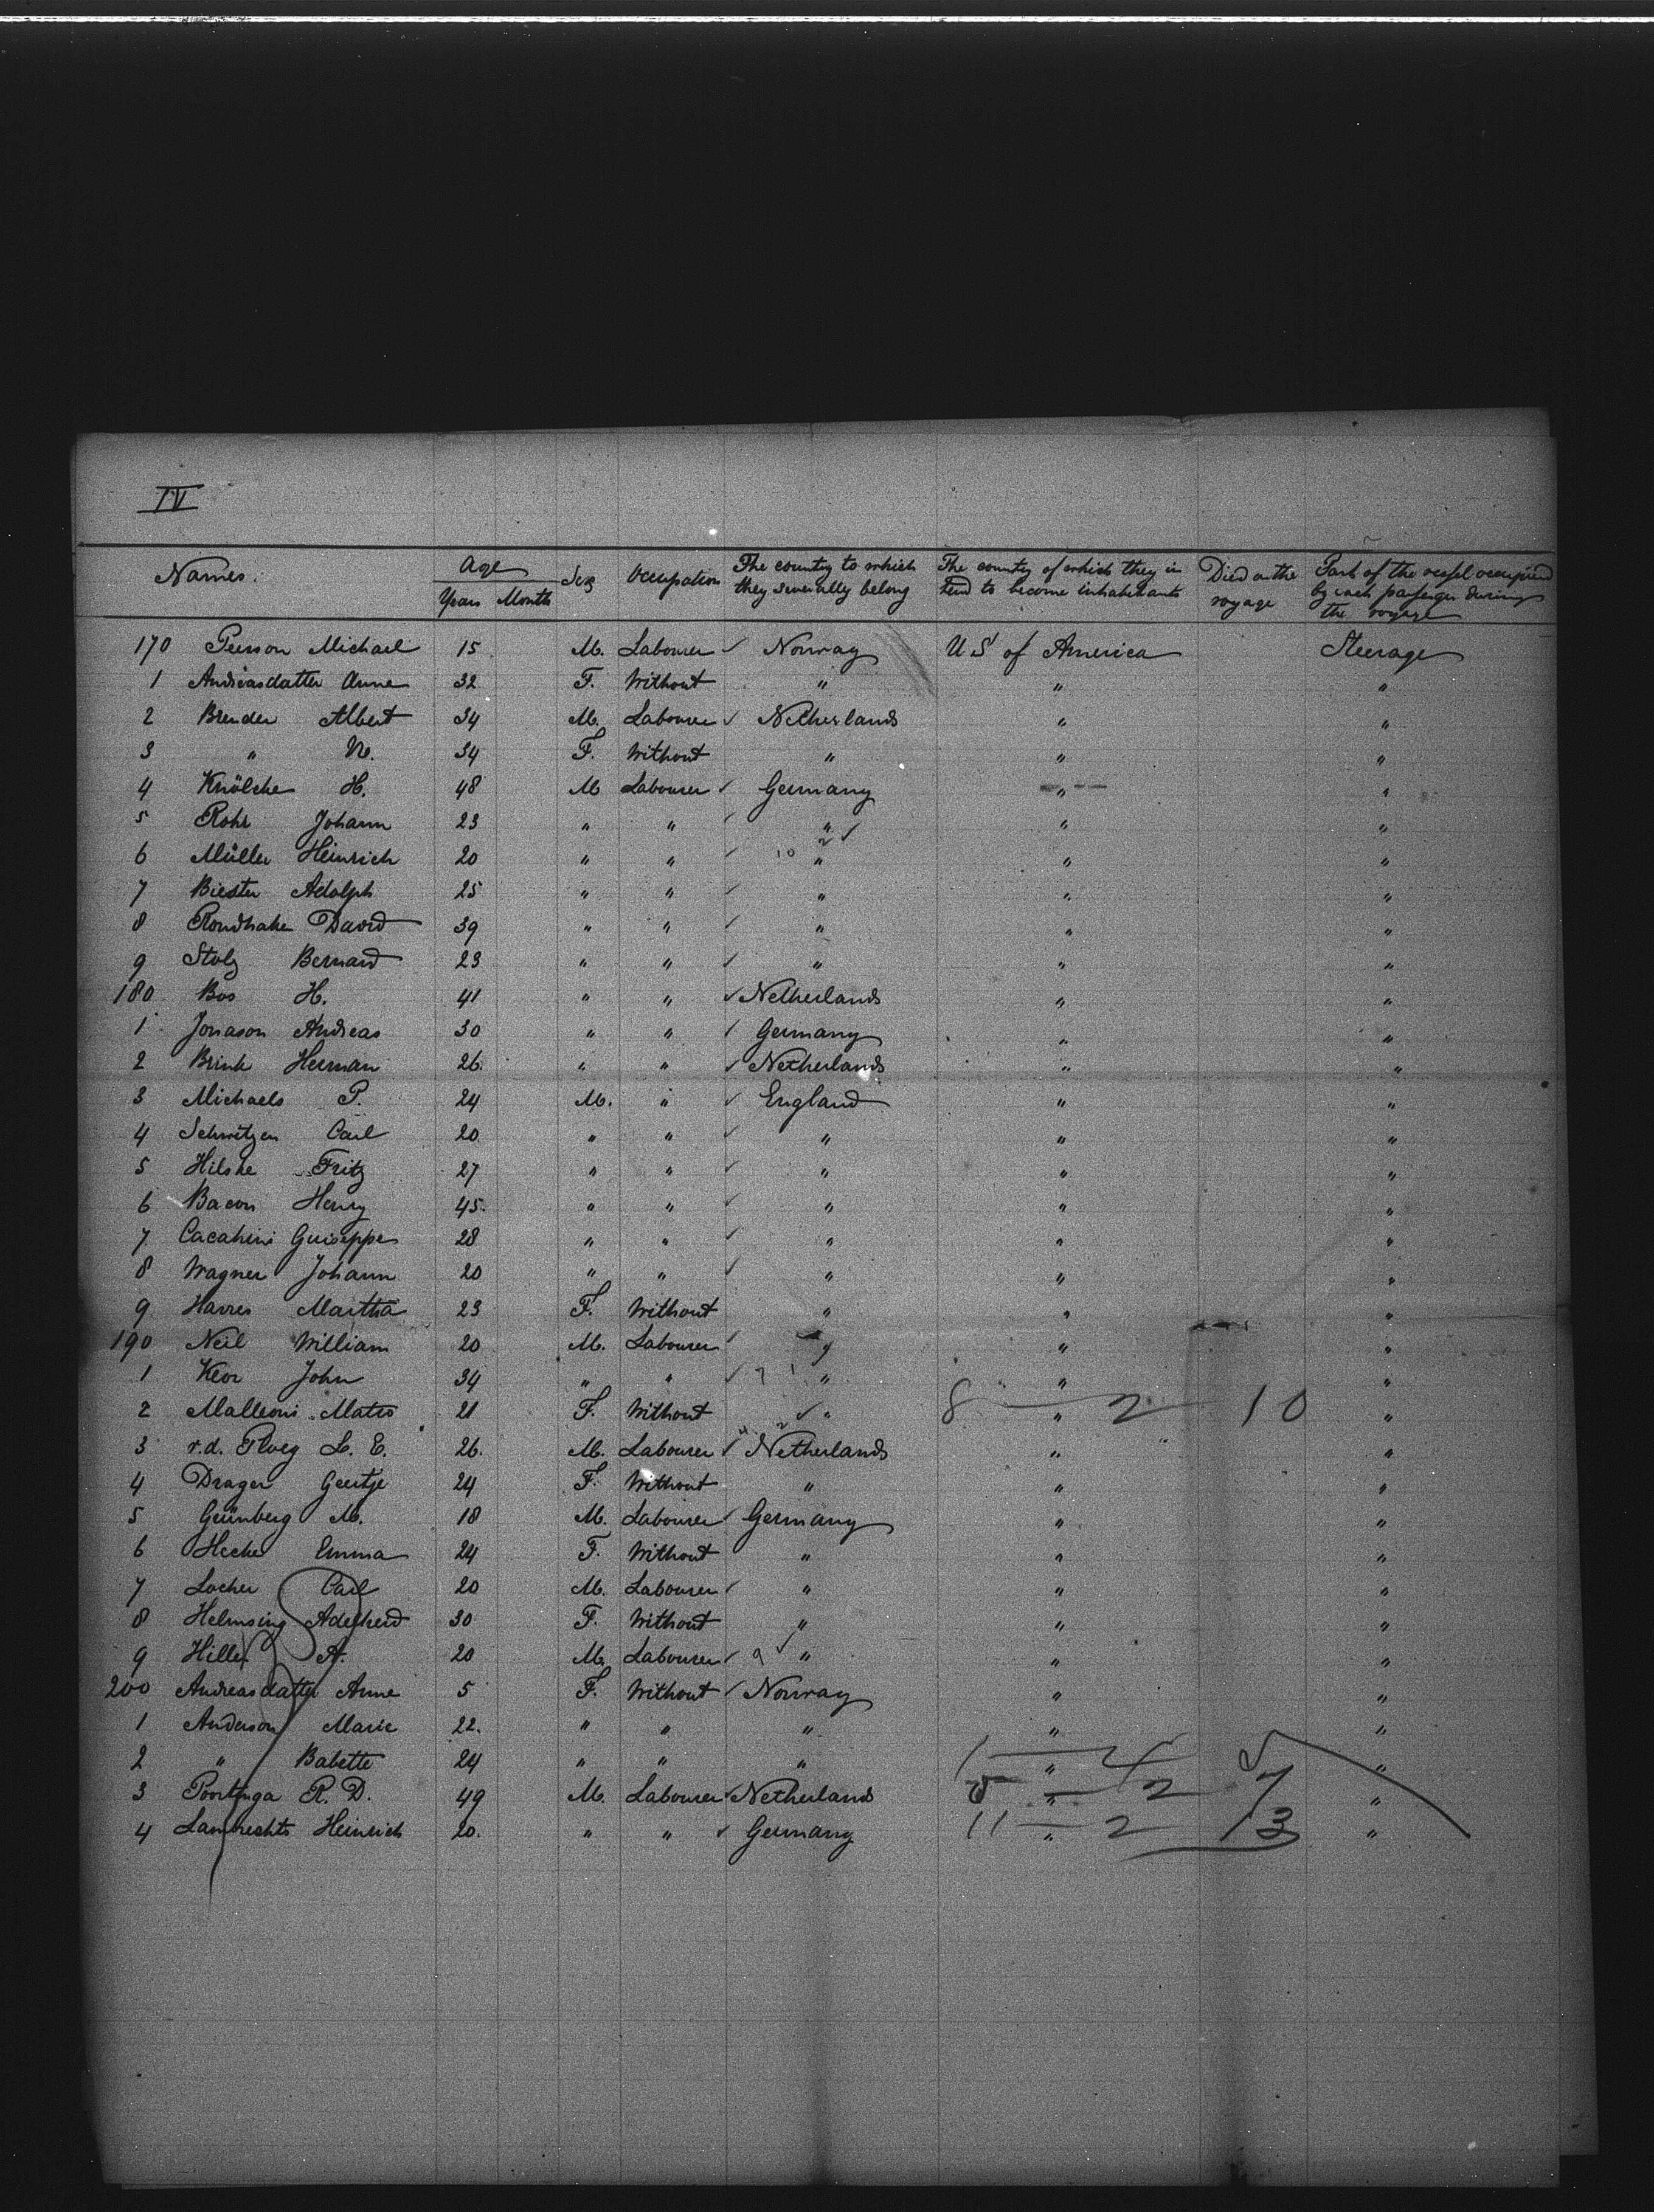 IV
Names. Age Years Month Sex Occupation The country to which they severally belong The country of which they intend to become inhabitants Died on the voyage Part of the vessel occupied by each passenger during the voyage
170 Person Michael 15 M. Labourer ✓ Norway U S of America Steerage
1 Andreasdatter Anne 32 F. Without " " "
2 Brender Albert 34 M. Labourer ✓ Netherlands " "
3 " N. 34 F. Without " " "
4 Knölche H. 48 M Labourer ✓ Germany " "
5 Rohr Johann 23 " " ✓ " " "
6 Müller Heinrich 20 " " ✓ 10 2 ✓ " " "
7 Biester Adolph 25 " " ✓ " " "
8 Rondhake David 39 " " ✓ " " "
9 Stolz Bernard 23 " " ✓ " " "
180 Bos H. 41 " " ✓ Netherlands " "
1 Jonason Andreas 30 " " ✓ Germany " "
2 Brink Herman 26. " " ✓ Netherlands " "
3 Michaels P. 24 M. " ✓ England " "
4 Schwitzen Carl 20 " " ✓ " " "
5 Hilske Fritz 27 " " ✓ " " "
6 Bacon Henry 45. " " ✓ " " "
7 Cacahini Guiseppe 28 " " ✓ " " "
8 Wagner Johann 20 " " ✓ " " "
9 Harres Martha 23 F. Without " " "
190 Neil William 20 M. Labourer ✓ " " "
1 Keor John 34 " " ✓ " " "
2 Malleoni Matio 21 F. Without ✓ " " 8 2 10 "
3 v.d. Ploeg L. E. 26. M. Labourer ✓ Netherlands " "
4 Drager Geertje 24 F. Without " " "
5 Grünberg M. 18 M. Labourer ✓ Germany " "
6 Hecke Emma 24 F. Without " " "
7 Locher Carl 20 M. Labourer ✓ " " "
8 Helmsing Adelheid 30 F. Without " " "
9 Hiller A. 20 M. Labourer ✓ 9 ✓ " " "
200 Andreasdatter Anne 5 F. Without ✓ Norway " "
1 Anderson Marie 22. " " " " "
2 " Babette 24 " " " " "
3 Poortinga R. D. 49 M. Labourer ✓ Netherlands 5 " 2 7 "
4 Lambrechts Heinrich 20. " " ✓ Germany 11 " 2 13 "